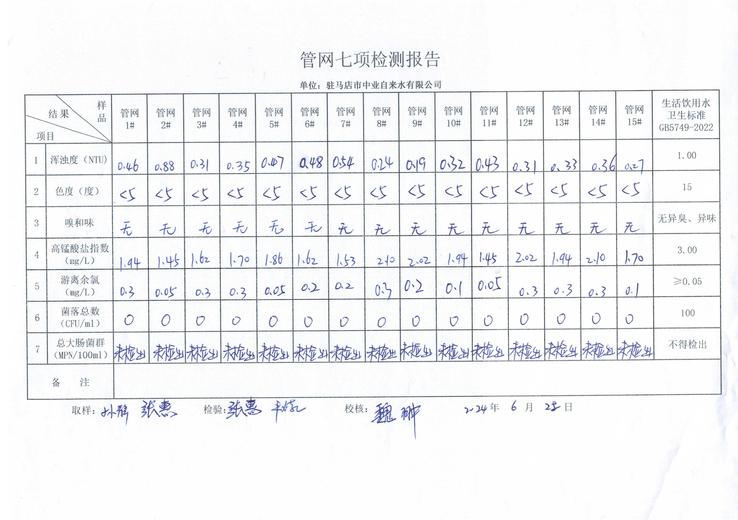 管网七项检测报告
单位：驻马店市中业自来水有限公司
结果 样品 项目 管网1# 管网2# 管网3# 管网4# 管网5# 管网6# 管网7# 管网8# 管网9# 管网10# 管网11# 管网12# 管网13# 管网14# 管网15# 生活饮用水卫生标准GB5749-2022
1 浑浊度（NTU） 0.46 0.88 0.31 0.35 0.47 0.48 0.54 0.24 0.19 0.32 0.43 0.31 0.33 0.36 0.27 1.00
2 色度（度） <5 <5 <5 <5 <5 <5 <5 <5 <5 <5 <5 <5 <5 <5 <5 15
3 嗅和味 无 无 无 无 无 无 无 无 无 无 无 无 无 无 无 无异臭、异味
4 高锰酸盐指数（mg/L） 1.94 1.45 1.62 1.70 1.86 1.62 1.53 2.10 2.02 1.94 1.45 2.02 1.94 2.10 1.70 3.00
5 游离余氯（mg/L） 0.3 0.05 0.3 0.3 0.05 0.2 0.2 0.3 0.2 0.1 0.05 0.3 0.3 0.3 0.1 ≥0.05
6 菌落总数（CFU/ml） 0 0 0 0 0 0 0 0 0 0 0 0 0 0 0 100
7 总大肠菌群（MPN/100ml） 未检出 未检出 未检出 未检出 未检出 未检出 未检出 未检出 未检出 未检出 未检出 未检出 未检出 未检出 未检出 不得检出
备 注
取样： 张惠 检验：张惠 校核：魏翀 2024年 6 月 28 日